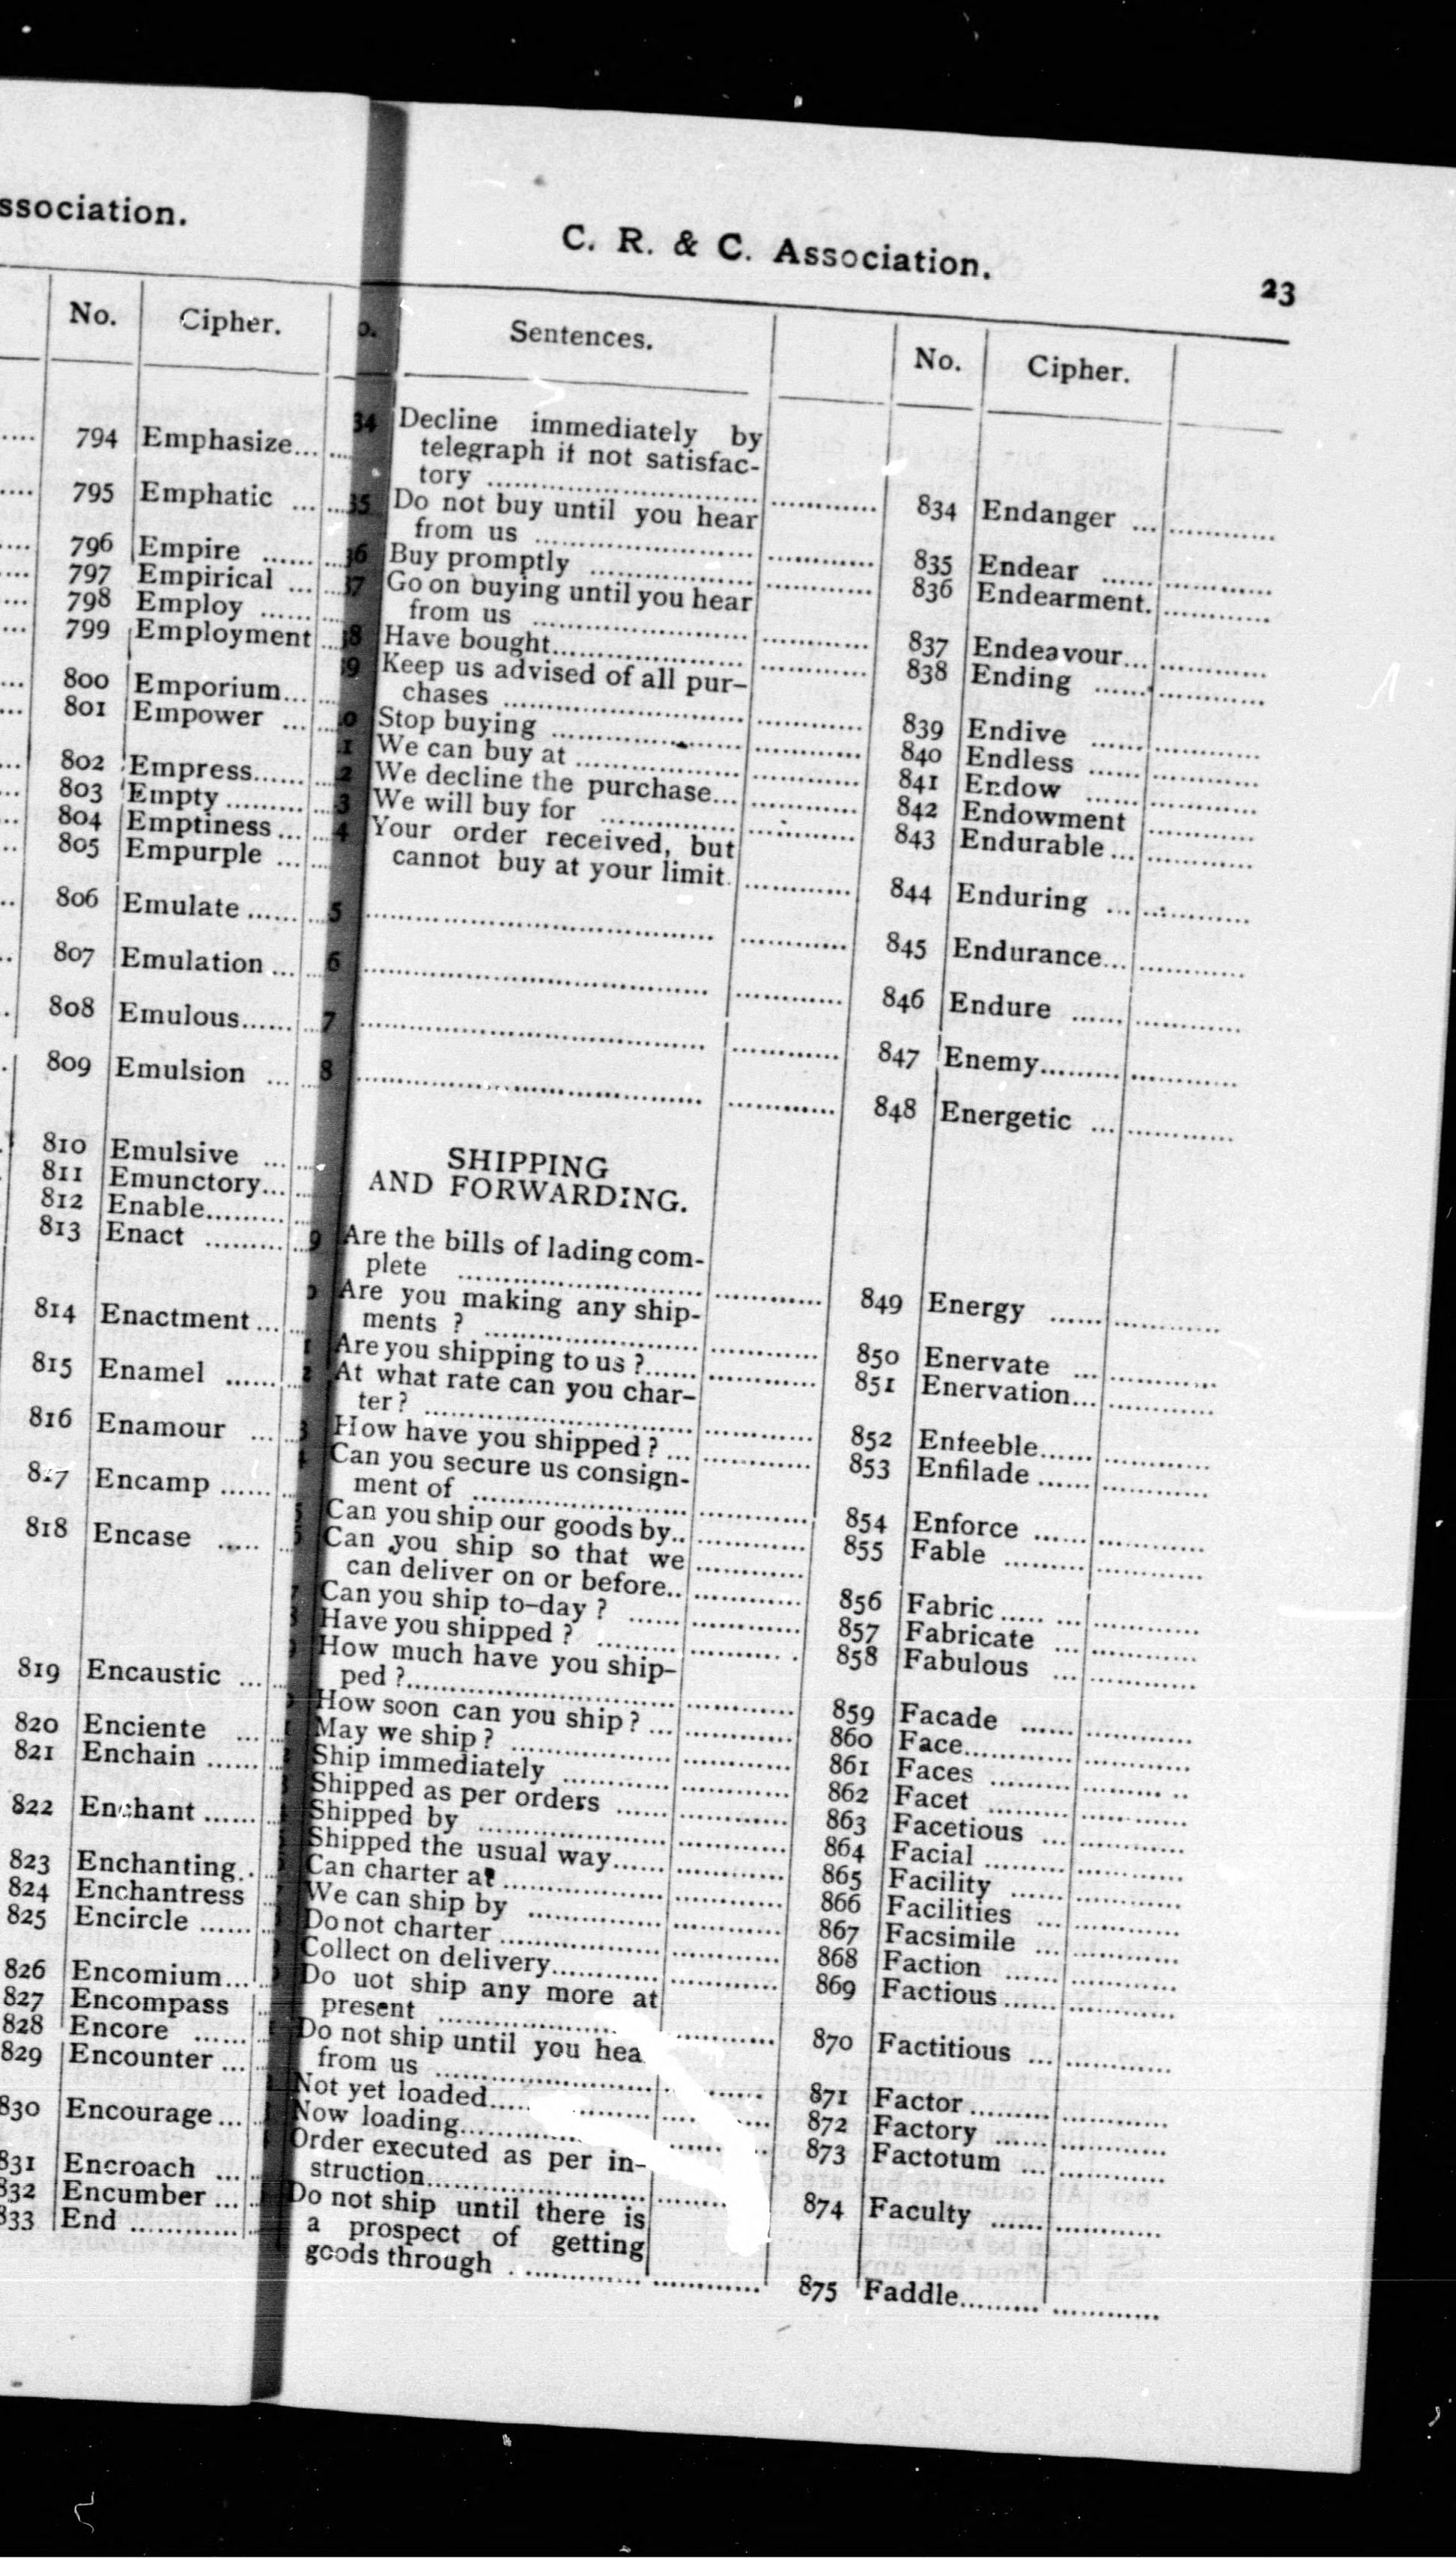 ssociation.
No. Cipher.
794 Emphasize...
795 Emphatic ...
796 Empire ......
797 Empirical ...
798 Employ ......
799 Employment
800 Emporium...
801 Empower ...
802 Empress......
803 Empty .........
804 Emptiness ...
805 Empurple ...
806 Emulate ......
807 Emulation ...
808 Emulous......
809 Emulsion ...
810 Emulsive ...
811 Emunctory...
812 Enable.........
813 Enact .........
814 Enactment ...
815 Enamel ......
816 Enamour ...
817 Encamp ......
818 Encase .....
819 Encaustic ...
820 Enciente ...
821 Enchain ......
822 Enchant ......
823 Enchanting..
824 Enchantress
825 Encircle ......
826 Encomium...
827 Encompass
828 Encore ......
829 Encounter ...
830 Encourage...
831 Encroach ...
832 Encumber ...
833 End ............
C. R. & C. Association.
23
o. Sentences. No. Cipher.
34 Decline immediately by
telegraph if not satisfac-
tory .............................. 834 Endanger ...
35 Do not buy until you hear
from us ........................ 835 Endear ......
36 Buy promptly .................. 836 Endearment.
37 Go on buying until you hear
from us ........................ 837 Endeavour...
38 Have bought..................... 838 Ending ......
39 Keep us advised of all pur-
chases ........................... 839 Endive ......
0 Stop buying ..................... 840 Endless ......
1 We can buy at .................. 841 Endow ......
2 We decline the purchase... 842 Endowment
3 We will buy for ............... 843 Endurable ...
4 Your order received, but
cannot buy at your limit. 844 Enduring ...
5 .......................................... 845 Endurance...
6 .......................................... 846 Endure ......
7 .......................................... 847 Enemy.........
8 .......................................... 848 Energetic ...
SHIPPING
AND FORWARDING.
9 Are the bills of lading com-
plete .............................. 849 Energy ......
Are you making any ship-
ments ? ........................ 850 Enervate ...
Are you shipping to us ?...... 851 Enervation...
At what rate can you char-
ter ? .............................. 852 Enfeeble......
How have you shipped ? ... 853 Enfilade ......
Can you secure us consign-
ment of ........................ 854 Enforce ......
Can you ship our goods by.. 855 Fable .........
Can you ship so that we
can deliver on or before.. 856 Fabric ..... ...
Can you ship to-day ? ...... 857 Fabricate ...
Have you shipped ? ......... 858 Fabulous ...
How much have you ship-
ped ?.............................. 859 Facade ......
How soon can you ship ? ... 860 Face............
May we ship ? .................. 861 Faces .........
Ship immediately ............ 862 Facet .........
Shipped as per orders ...... 863 Facetious ...
Shipped by ..................... 864 Facial .........
Shipped the usual way...... 865 Facility ......
Can charter at .................. 866 Facilities ...
We can ship by ............... 867 Facsimile ...
Do not charter .................. 868 Faction ......
Collect on delivery............ 869 Factious ......
Do uot ship any more at
present ........................ 870 Factitious ...
Do not ship until you hea
from us ........................ 871 Factor .........
Not yet loaded.................. 872 Factory ......
Now loading..................... 873 Factotum ...
Order executed as per in-
struction........................ 874 Faculty ......
Do not ship until there is
a prospect of getting
goods through . ............... 875 Faddle.........